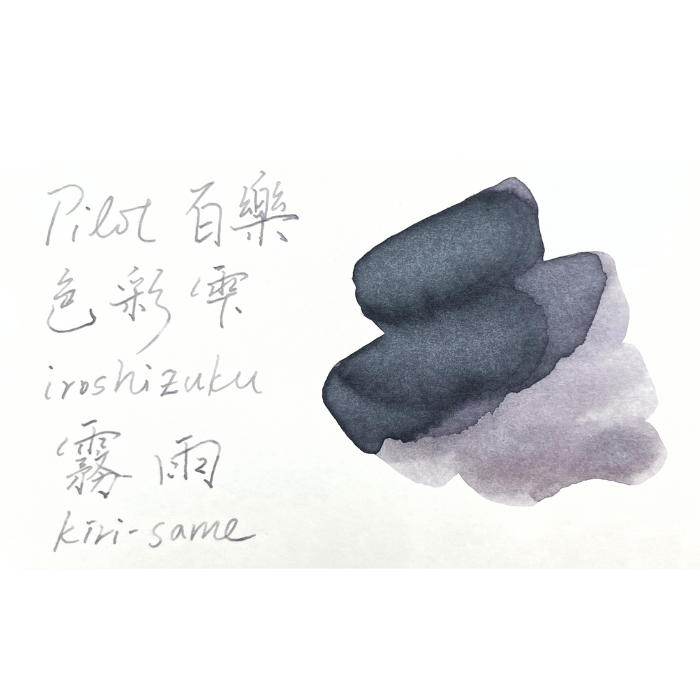 Pilot 百樂
色彩雫
iroshizuku
霧雨
kiri-same